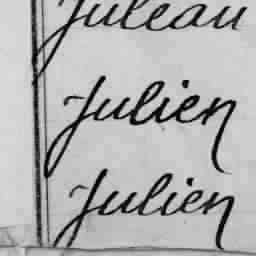 Juleau
Julien
Julien